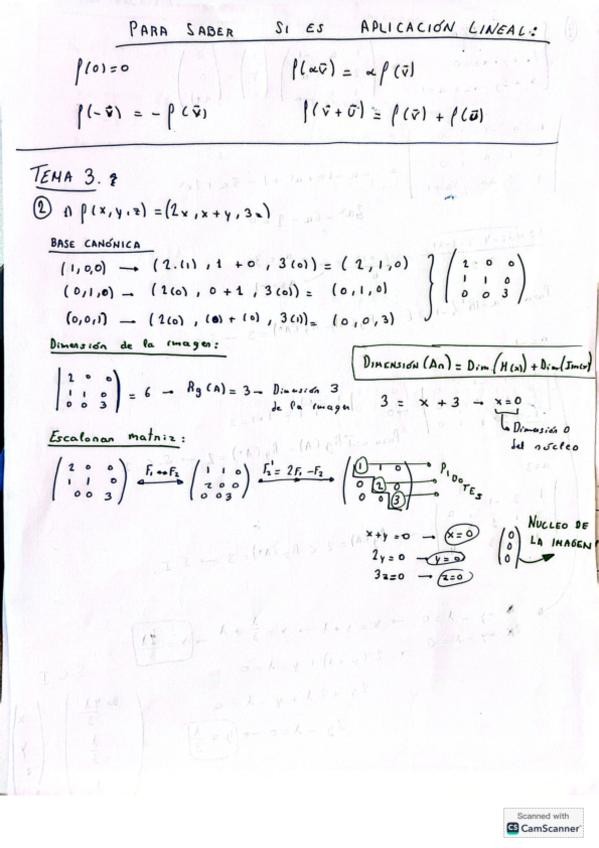 PARA SABER SI ES APLICACIÓN LINEAL:
f(0)=0 f(αv̄) = αf(v̄)
f(-v̄) = -f(v̄) f(v̄+ū) = f(v̄) + f(ū)
TEMA 3.
② f(x,y,z)=(2x,x+y,3z)
BASE CANÓNICA
(1,0,0) → (2.(1), 1+0, 3(0)) = (2,1,0)
(0,1,0) → (2(0), 0+1, 3(0)) = (0,1,0)
(0,0,1) → (2(0), (0)+(0), 3(1)) = (0,0,3)
2 0 0
1 1 0
0 0 3
Dimensión de la imagen:
DIMENSIÓN (An) = Dim (H(x)) + Dim (Im(x))
2 0 0
1 1 0
0 0 3
= 6 → Rg(A)=3 → Dimensión 3
de la imagen
3 = x + 3 → x=0
Dimensión 0
del núcleo
Escalonar matriz:
2 0 0
1 1 0
0 0 3
F₁↔F₂
1 1 0
2 0 0
0 0 3
F₂'=2F₁-F₂
1 1 0
0 2 0
0 0 3
PIDOTES
x+y=0 → x=0
2y=0 → y=0
3z=0 → z=0
0
0
0
NUCLEO DE
LA IMAGEN
Scanned with
CS CamScanner